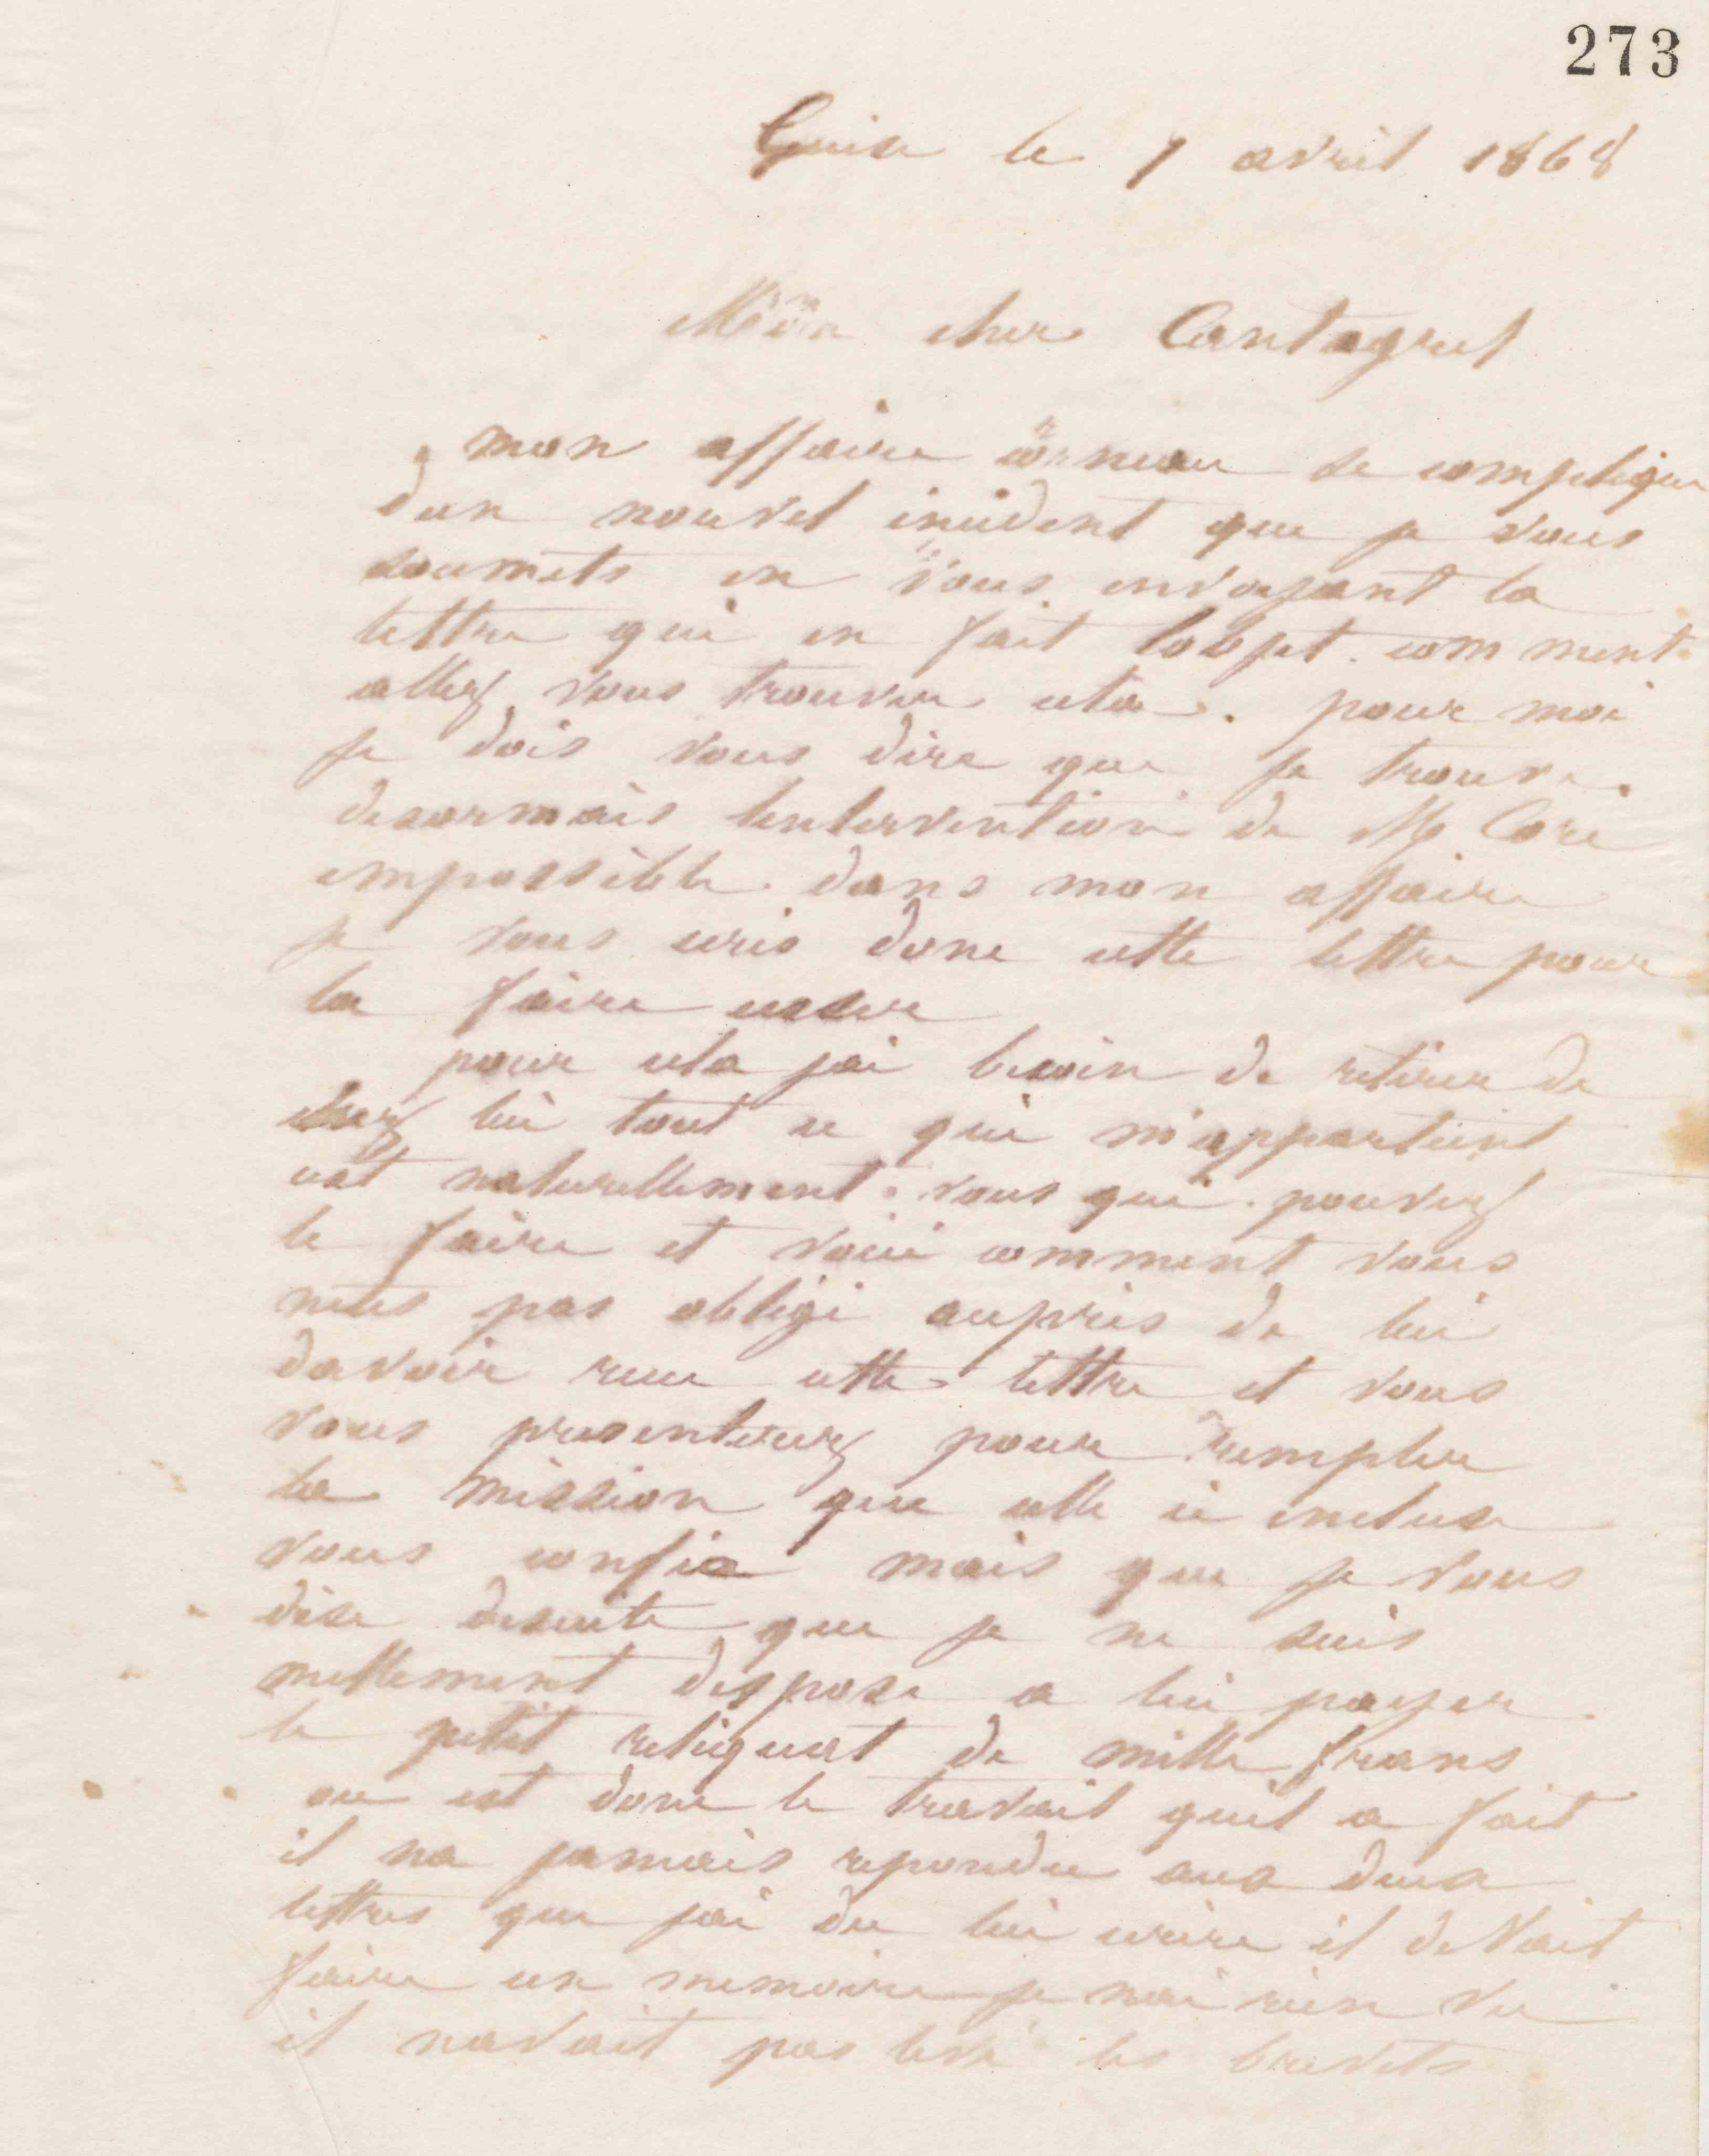 273
Guise le 7 avril 1868
Mon cher Cantagrel
mon affaire corneau se complique
dun nouvel incident que je vous
soumets en vous envoyant la
lettre qui en fait lobjet. comment
allez vous trouver cela. pour moi
je dois vous dire que je trouve
desormais lintervention de Mr Coré
impossible dans mon affaire
je vous ecris donc cette lettre pour
la faire cesser
pour cela jai besoin de retirer de
chez lui tout ce qui m'appartient
cest naturellement vous qui pouvez
le faire et voici comment vous
netes pas obligé aupres de lui
davoir recu cette lettre et vous
vous presenterez pour remplir
la mission que celle ci incluse
vous confie mais que je vous
dise desuite que je ne suis
nullement disposé a lui payer
le petit reliquat de mille francs
ou est donc le travail quil a fait
il na jamais repondu aux deux
lettres que jai du lui ecrire il devait
faire un memoire je nai rien vu
il navait pas levé les brevets